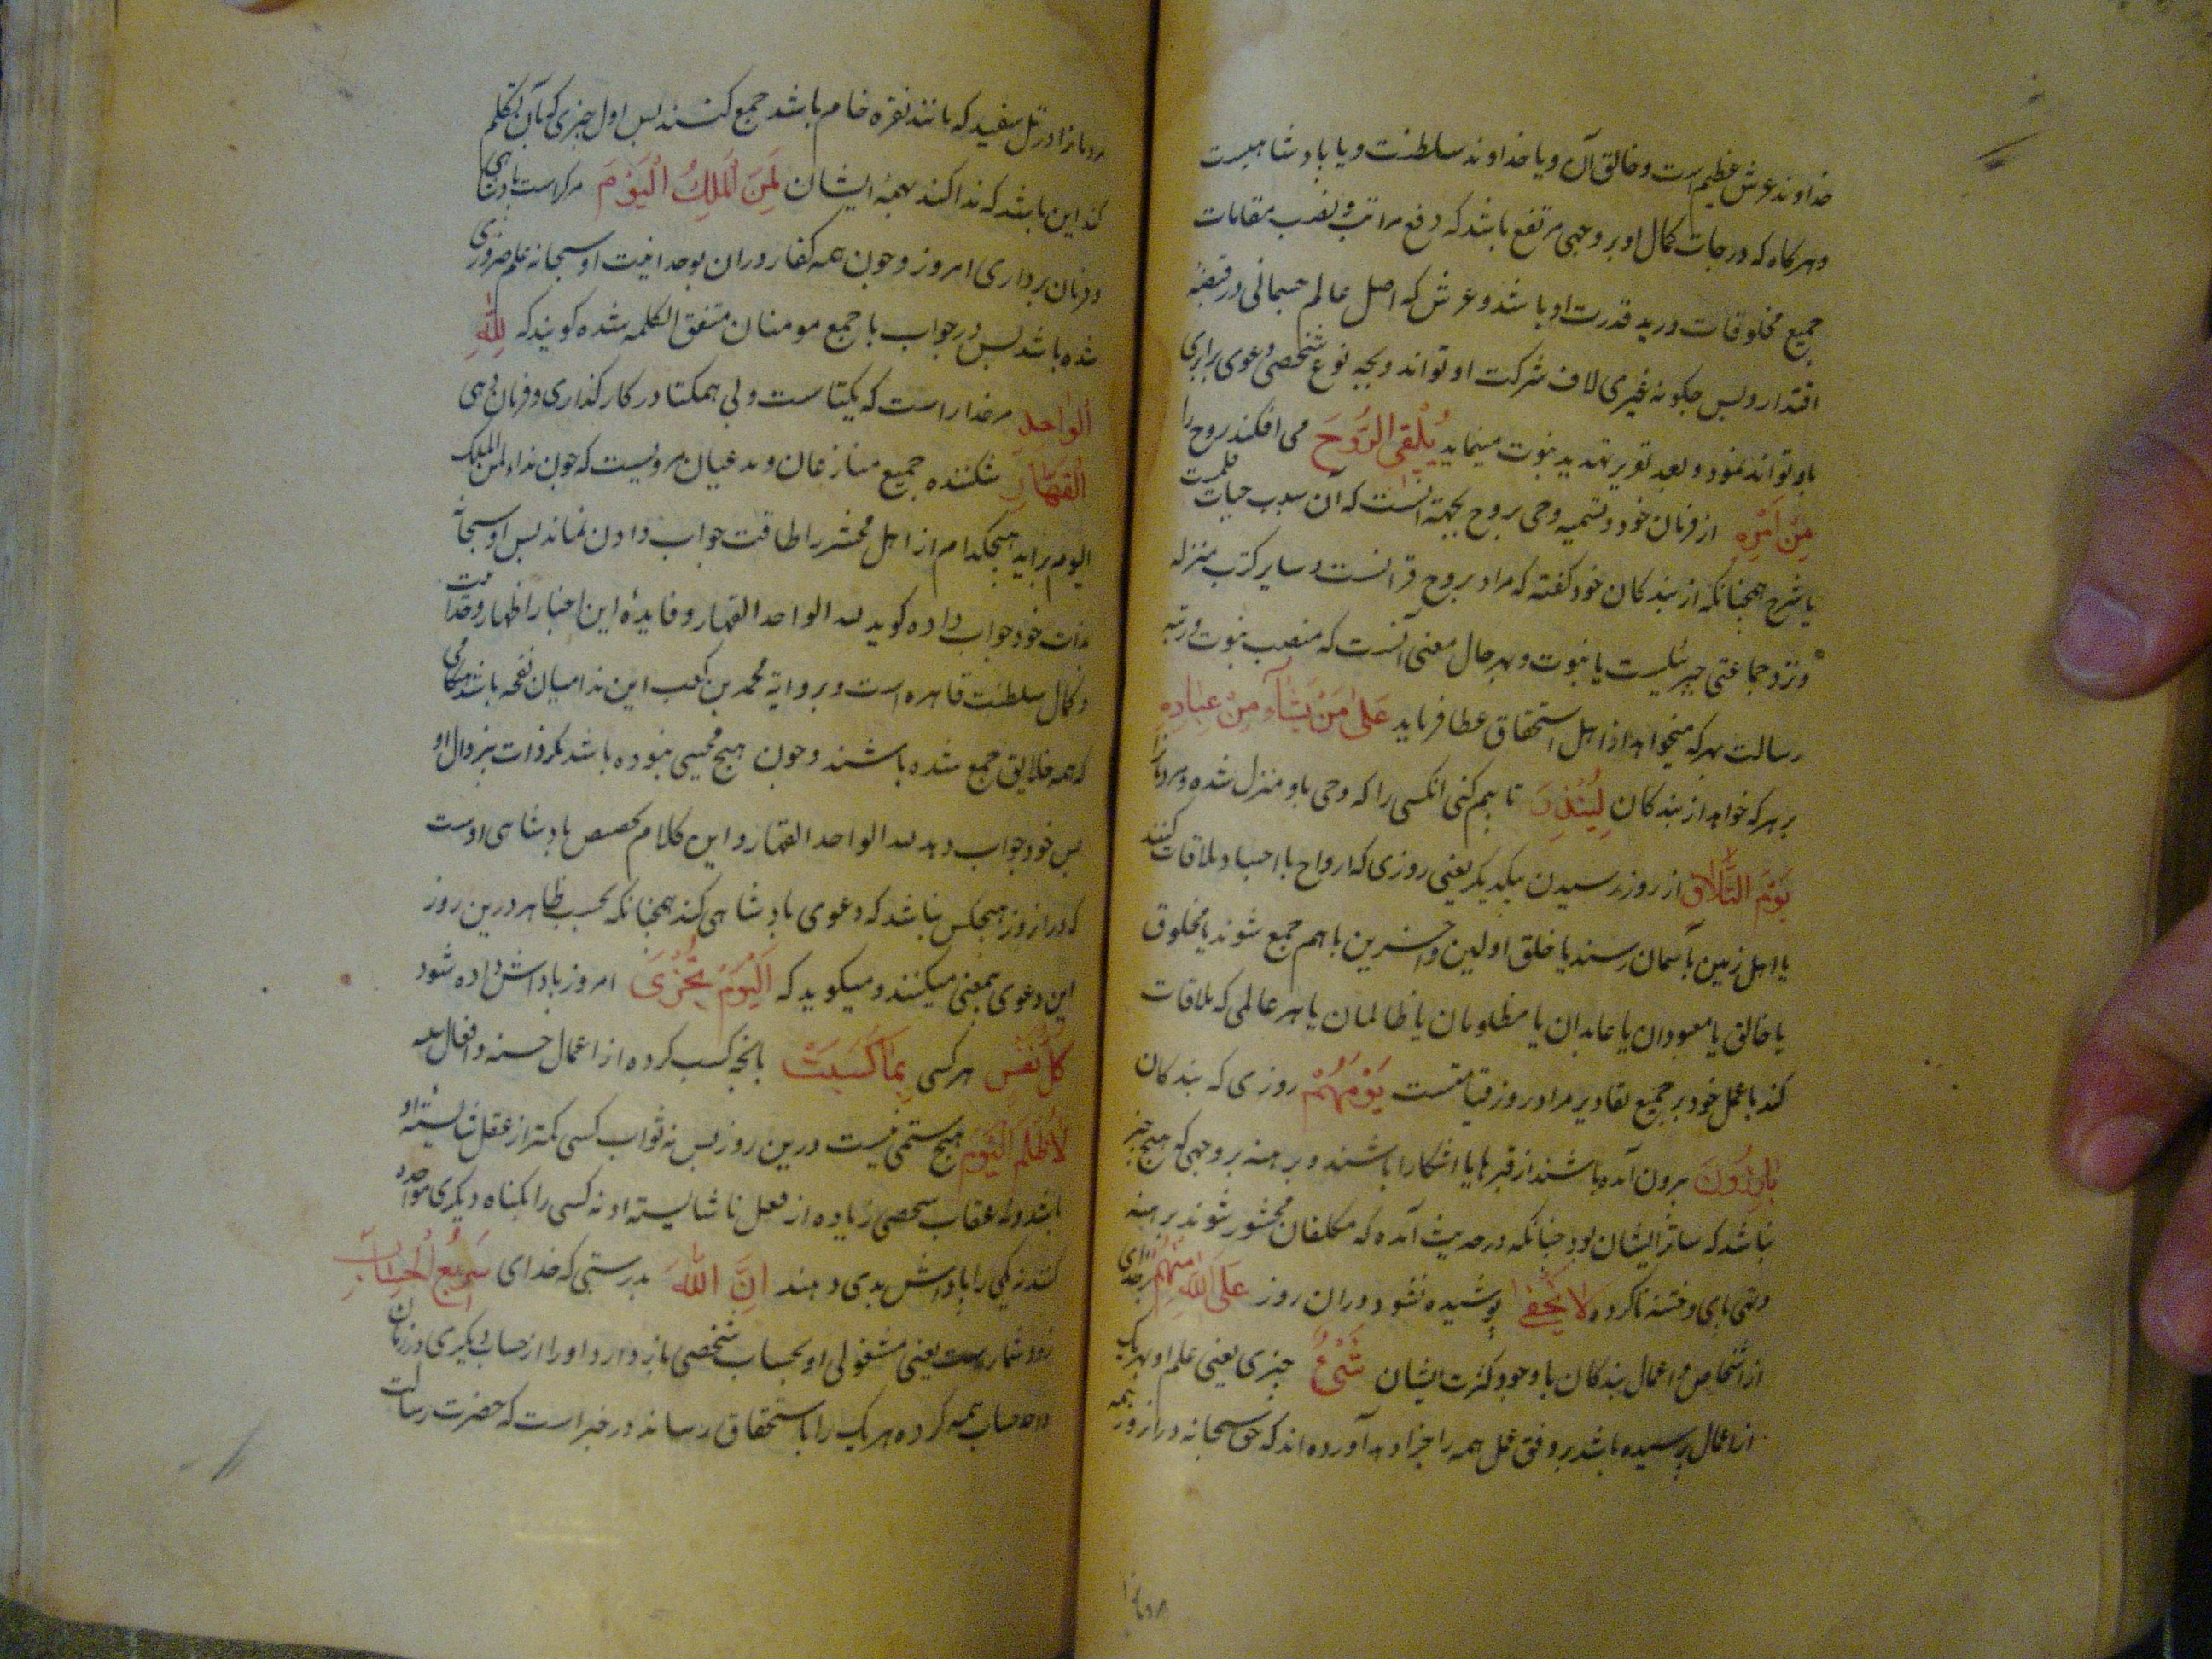 خداوند عرش عظیم است و خالق آن و یا خداوند سلطنت و یا بادشاهیست
و هرکاه که درجات کمال او بر وجهی مرتفع باشد که دفع مراتب و نصب مقامات
جمیع مخلوقات در ید قدرت او باشد و عرش که اصل عالم جسمانی در قبضهٔ
اقتدار او بس جکونه غیری لاف شرکت او تواند و بجه نوع شخصی دعوی برابری
باو تواند نمود و بعد تقریر تهدید نبوت مینماید یُلْقِی الرُّوحَ می افکند روح را
مِنْ اَمْرِهِ از فرمان خود و تسمیه وحی بروح بجهة آنست که آن سبب حیات قلبست
یا شرح همجنانکه از بندکان خود کفته که مراد بروح قرانست و سایر کتب منزله
و نزد جماعتی جبرئیلست یا نبوت و بهر حال معنی آنست که منصب نبوت و رتبه
رسالت بهر که میخواهد از اهل استحقاق عطا فرماید عَلٰی مَنْ یَشَآءُ مِنْ عِبَادِهِ
بر هر که خواهد از بندکان لِیُنْذِرَ تا بیم کنی انکسی را که وحی باو منزل شده مردمانرا
یَوْمَ التَّلَاقِ از روز رسیدن بیکدیکر یعنی روزی که ارواح با اجساد ملاقات کنند
یا اهل زمین بآسمان رسند یا خلق اولین و اخرین با هم جمع شوند یا مخلوق
یا خالق یا معبودان یا عابدان یا مظلومان یا ظالمان یا هر عاملی که ملاقات
کند با عمل خود بر جمیع تقادیر مراد روز قیامتست یَوْمَ هُمْ روزی که بندکان
بَارِزُونَ برون آمده باشند از قبرها یا اشکارا باشند و برهنه بر وجهی که هیج جیز
نباشد که ساتر ایشان بود جنانکه در حدیث آمده که مکلفان محشور شوند برهنه
و تهی بای و ختنه ناکرده لَا یَخْفٰی بوشیده نشود دران روز عَلَی اللهِ مِنْهُمْ بر خدای
از اشخاص و اعمال بندکان با وجود کثرت ایشان شَیْءٌ جیزی یعنی علم او بهر یک
از اعمال رسیده باشد بر وفق عمل همه را جزا دهد آورده اند که حق سبحانه در انروز همه
مردمانرا
مردمانرا در تل سفید که مانند نقره خام باشد جمع کنند بس اول جیزی که بآن تکلم
کند این باشد که ندا کند بهمهٔ ایشان لِمَنِ الْمُلْکُ الْیَوْمَ مر کراست بادشاهی
و فرمان برداری امروز و جون همه کفار وران بوحدانیت او سبحانه علم ضروری
شده باشد بس در جواب با جمع مومنان متفق الکلمه شده کویند که لِلّٰهِ
الْوَاحِدِ مر خدا راست که یکتاست و بی همکتا در کار کذاری و فرمان دهی
الْقَهَّارِ شکننده جمیع منازعان و مدعیان مرویست که جون نداء لمن الملک
الیوم براید هیجکدام از اهل محشر را طاقت جواب دادن نماند بس او سبحانه
بذات خود جواب داده کوید لله الواحد القهار و فایدهٔ این اخبار اظهار وحدانیت
و کمال سلطنت قاهره است و بروایة محمد بن کعب این ندا میان نفخه باشد هنکامی
که همه خلایق جمع شده باشند و جون هیج مجیبی نبوده باشد مکر ذات بیزوال او
بس خود جواب دهد لله الواحد القهار و این کلام تخصیص بادشاهی اوست
که در انروز هیجکس نباشد که دعوی بادشاهی کند همجنانکه بحسب ظاهر درین روز
این دعوی بمعنی میکنند و میکوید که اَلْیَوْمَ تُجْزٰی امروز باداش داده شود
کُلُّ نَفْسٍ هر کسی بِمَا کَسَبَتْ بآنجه کسب کرده از اعمال حسنه و افعال سیئه
لَا ظُلْمَ الْیَوْمَ هیج ستمی نیست درین روز بس نه ثواب کسی کمتر از فعل شایستهٔ او
باشد و نه عقاب شخصی زیاده از فعل ناشایسته او نه کسی را بکناه دیکری مواخذه
کنند نه نیکی را باداش بدی دهند اِنَّ اللهَ بدرستی که خدای سَرِیعُ الْحِسَابِ
زود شمارست یعنی مشغولی او بحساب شخصی باز ندارد او را از حساب دیکری در زمان
حساب همه کرده هر یک را باستحقاق رساند در خبر است که حضرت رسالت